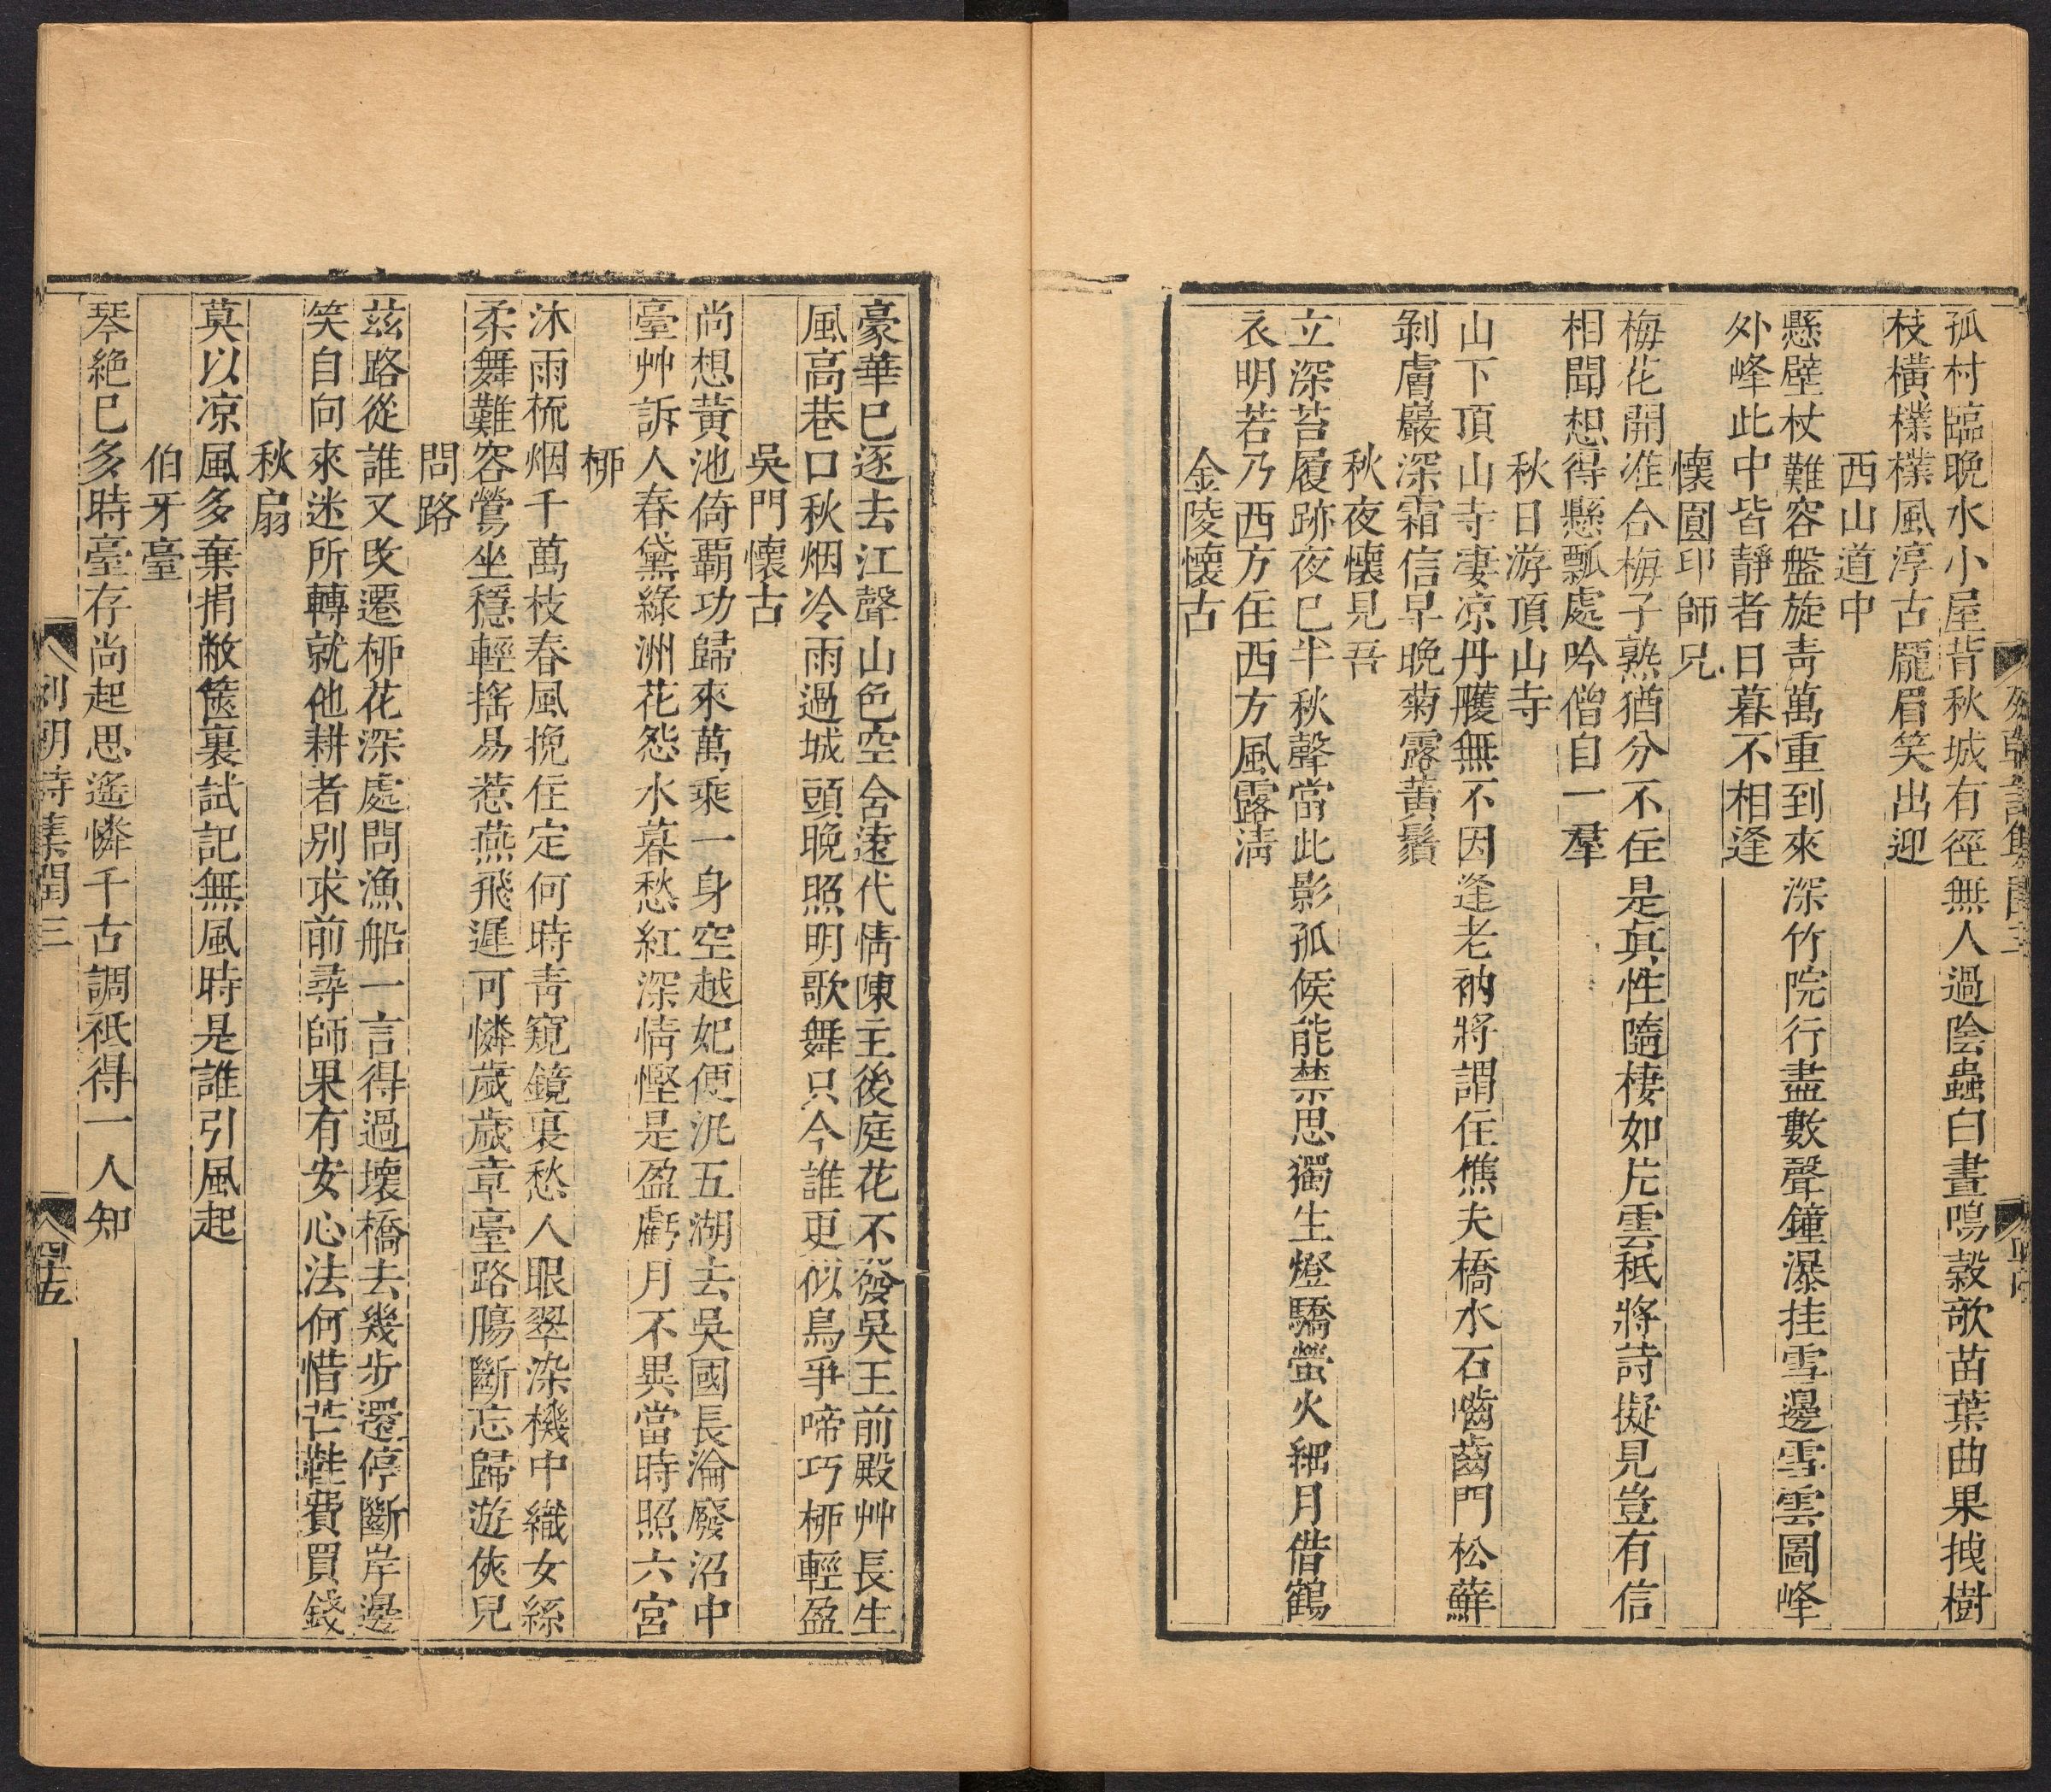 孤村臨晚水小屋背秋城有徑無人過陰蟲白晝鳴穀欹苗葉曲果拽樹
枝橫樸樸風淳古龎眉笑出迎
西山道中
懸壁杖難容盤旋靑萬重到來深竹院行盡數聲鐘瀑挂雪邊雪雲圖峰
外峰此中皆靜者日暮不相逢
懷圓印師兄
梅花開准合梅子熟猶分不住是真性隨棲如片雲秪將詩擬見豈有信
相聞想得懸瓢處吟僧自一羣
秋日游頂山寺
山下頂山寺凄凉丹雘無不因逢老衲將謂住樵夫橋水石嚙齒門松蘚
剝膚巖深霜信早晚菊露黃鬚
秋夜懷見吾
立深苔履跡夜已半秋聲當此影孤候能禁思獨生燈驕螢火細月借鶴
衣明若乃西方住西方風露淸
金陵懷古
豪華已逐去江聲山色空含遠代情陳主後庭花不發吳王前殿艸長生
風高巷口秋烟冷雨過城頭晚照明歌舞只今誰更似鳥爭啼巧桞輕盈
吳門懷古
尚想黃池倚霸功歸來萬乘一身空越妃便汎五湖去吳國長淪廢沼中
臺艸訴人春黛綠洲花怨水暮愁紅深情慳是盈虧月不異當時照六宮
桞
沐雨梳烟千萬枝春風挽住定何時靑窺鏡裏愁人眼翠染機中織女絲
柔舞難容鶯坐穩輕搖易惹燕飛遲可憐歲歲章臺路腸斷忘歸遊俠兒
問路
茲路從誰又改遷桞花深處問漁船一言得過壞橋去幾步還停斷岸邊
笑自向來迷所轉就他耕者別求前尋師果有安心法何惜芒鞋費買錢
秋扇
莫以凉風多棄捐敝篋裏試記無風時是誰引風起
伯牙臺
琴絕已多時臺存尚起思遙憐千古調祇得一人知
列朝詩集閏三
四五